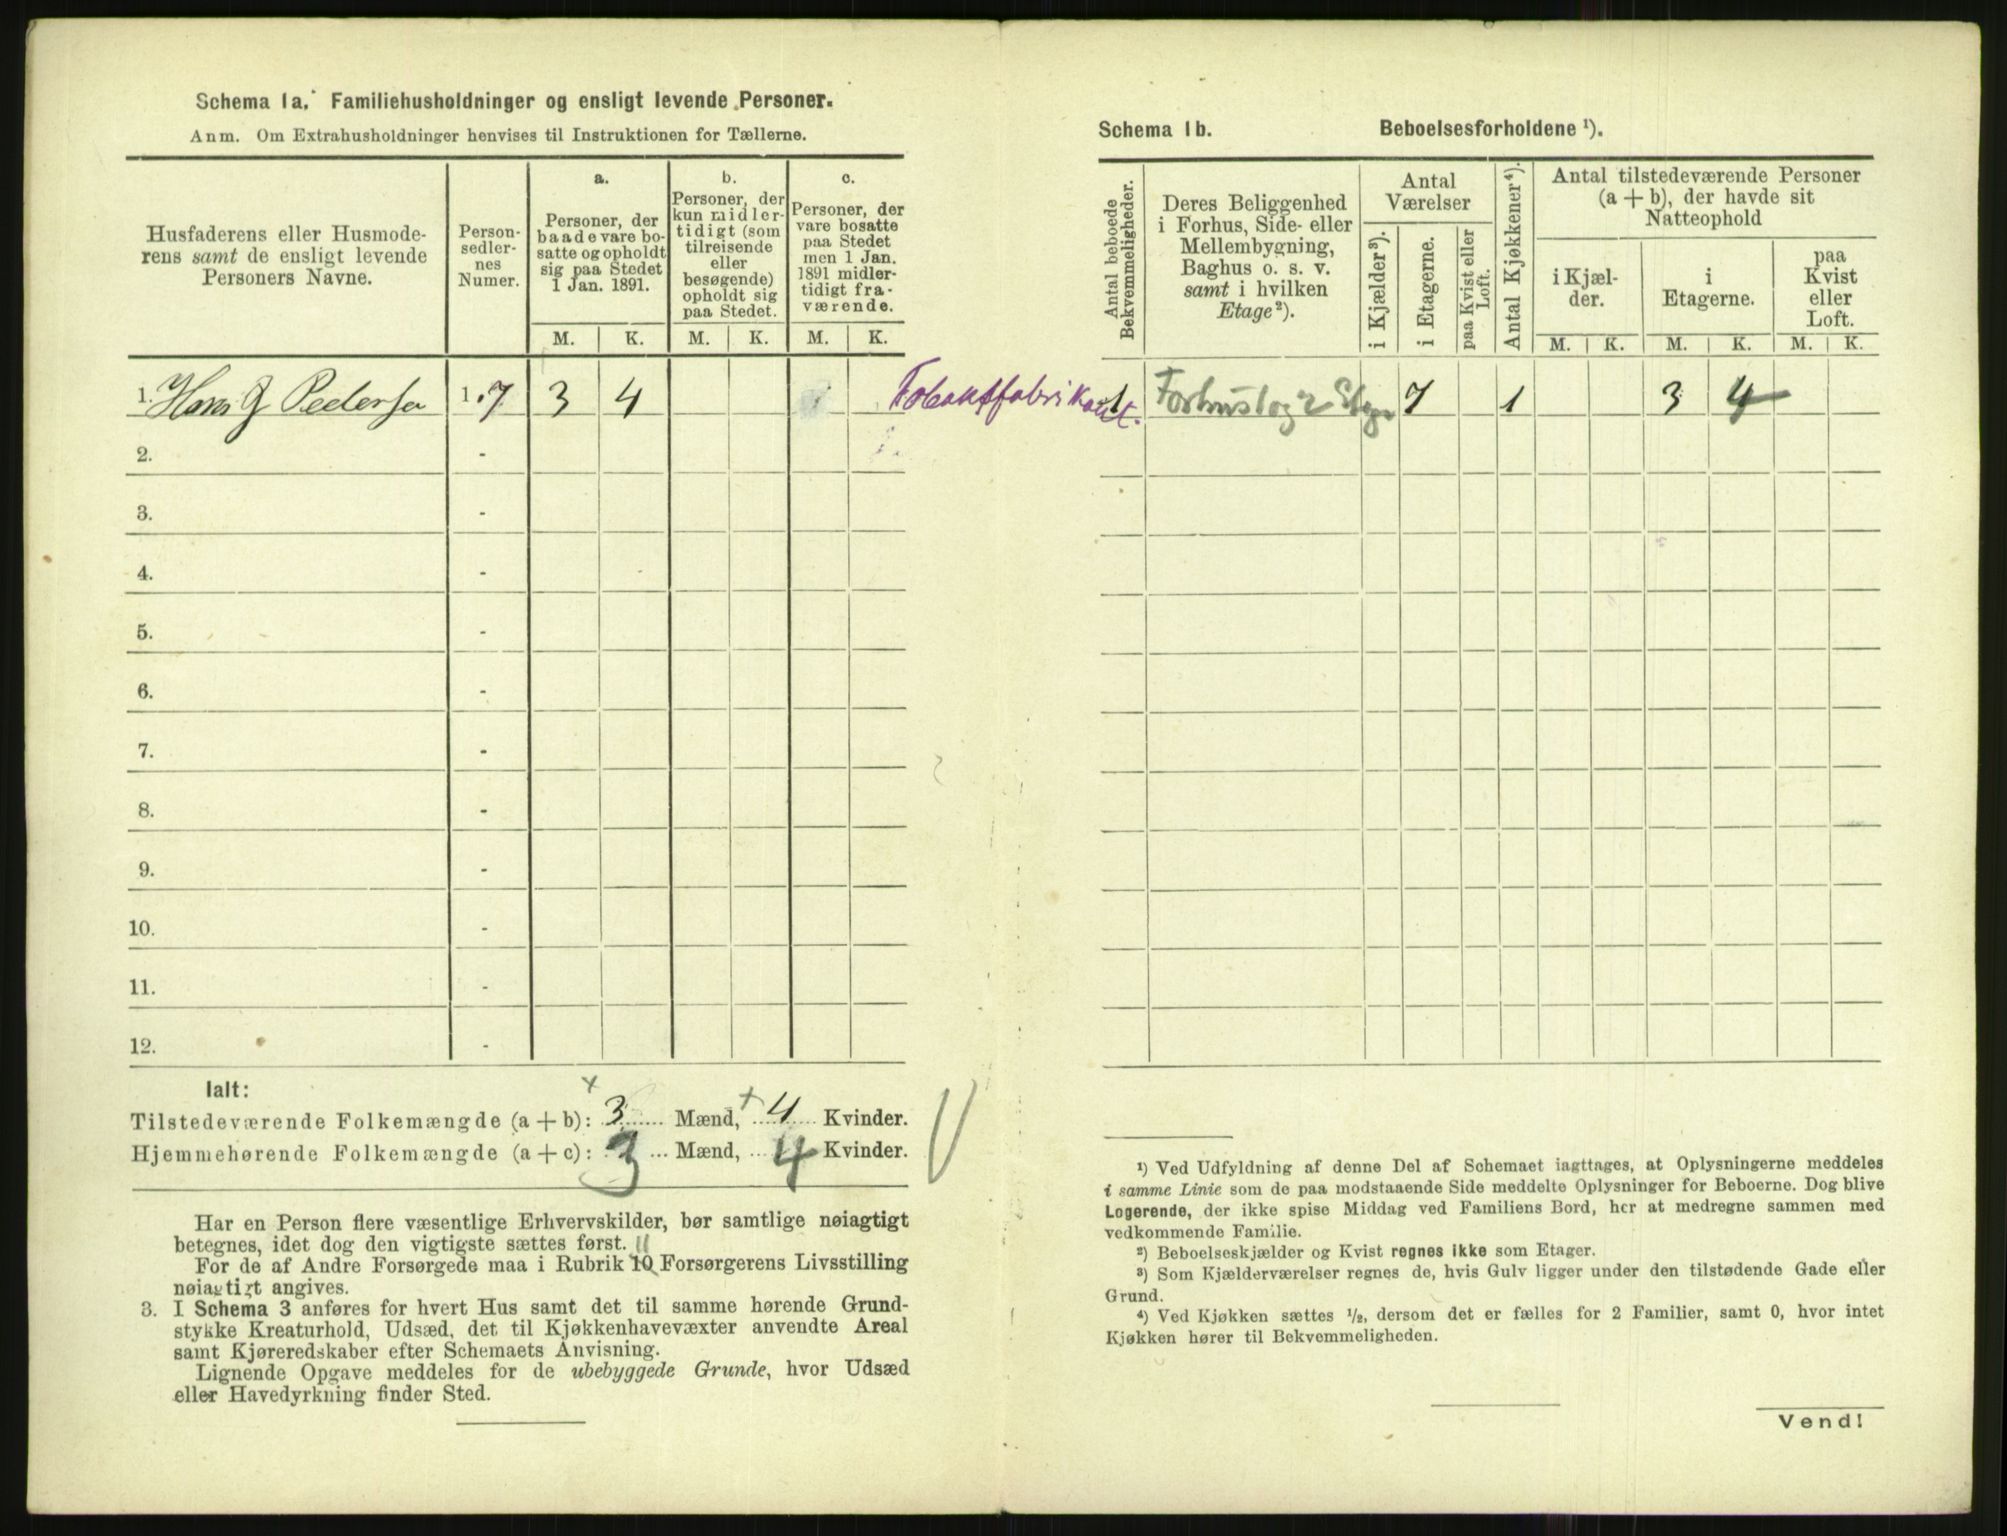 Schema 1a. Familiehusholdninger og ensligt levende Personer.
Anm. Om Extrahusholdninger henvises til Instruktionen for Tællerne.
Husfaderens eller Husmoderens samt de ensligt levende Personers Navne.
Personsedlernes Numer.
a.
Personer, der baade vare bosatte og opholdt sig paa Stedet 1 Jan. 1891.
b.
Personer, der kun midlertidigt (som tilreisende eller besøgende) opholdt sig paa Stedet.
c.
Personer, der vare bosatte paa Stedet men 1 Jan. 1891 midlertidigt fraværende.
M. K. M. K. M. K.
1. Hans J Pedersen 1-7 3 4 Tobaksfabrikant.
2. -
3. -
4. -
5. -
6. -
7. -
8. -
9. -
10. -
11. -
12. -
Ialt:
Tilstedeværende Folkemængde (a + b): 3 Mænd, 4 Kvinder.
Hjemmehørende Folkemængde (a + c): 3 Mænd, 4 Kvinder.
Har en Person flere væsentlige Erhvervskilder, bør samtlige nøiagtigt
betegnes, idet dog den vigtigste sættes først.
11
For de af Andre Forsørgede maa i Rubrik 10 Forsørgerens Livsstilling
nøiagtigt angives.
3. I Schema 3 anføres for hvert Hus samt det til samme hørende Grund-
stykke Kreaturhold, Udsæd, det til Kjøkkenhavevæxter anvendte Areal
samt Kjøreredskaber efter Schemaets Anvisning.
Lignende Opgave meddeles for de ubebyggede Grunde, hvor Udsæd
eller Havedyrkning finder Sted.
Schema 1b. Beboelsesforholdene ¹).
Antal beboede Bekvemmeligheder.
Deres Beliggenhed i Forhus, Side- eller Mellembygning, Baghus o. s. v. samt i hvilken Etage²).
Antal Værelser
i Kjælder³).
i Etagerne.
paa Kvist eller Loft.
Antal Kjøkkener⁴).
Antal tilstedeværende Personer (a + b), der havde sit Natteophold
i Kjælder.
i Etagerne.
paa Kvist eller Loft.
M. K. M. K. M. K.
1 Forhus 1 og 2 Etage 7 1 3 4
¹) Ved Udfyldning af denne Del af Schemaet iagttages, at Oplysningerne meddeles
i samme Linie som de paa modstaaende Side meddelte Oplysninger for Beboerne. Dog blive
Logerende, der ikke spise Middag ved Familiens Bord, her at medregne sammen med
vedkommende Familie.
²) Beboelseskjælder og Kvist regnes ikke som Etager.
³) Som Kjælderværelser regnes de, hvis Gulv ligger under den tilstødende Gade eller
Grund.
⁴) Ved Kjøkken sættes ½, dersom det er fælles for 2 Familier, samt 0, hvor intet
Kjøkken hører til Bekvemmeligheden.
Vend!